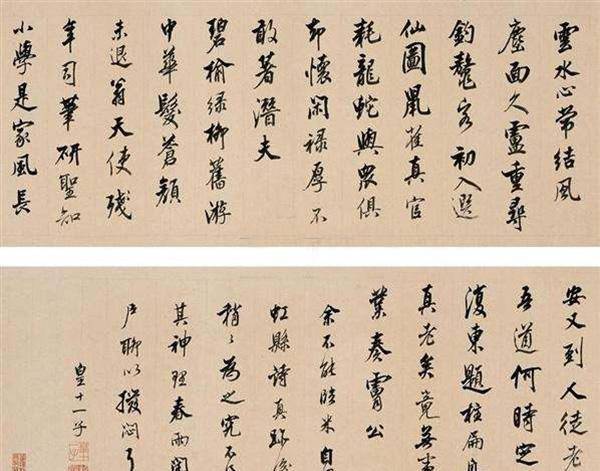 雲水心常結風
塵面久盧重尋
釣鼇客初入選
仙圖鼠雀真官
耗龍蛇與眾俱
却懷閑禄厚不
敢著潛夫
碧榆绿柳舊游
中華髮蒼顏
未退翁天使殘
年司筆研聖知
小學是家風長
安又到人徒老
吾道何時定
復東題柱扁
真老矣竟無
業奏膚公
余不能臨米自
虹縣詩真跡
稍稍為之究不
其神理春雨
户聊以撥悶
皇十一子